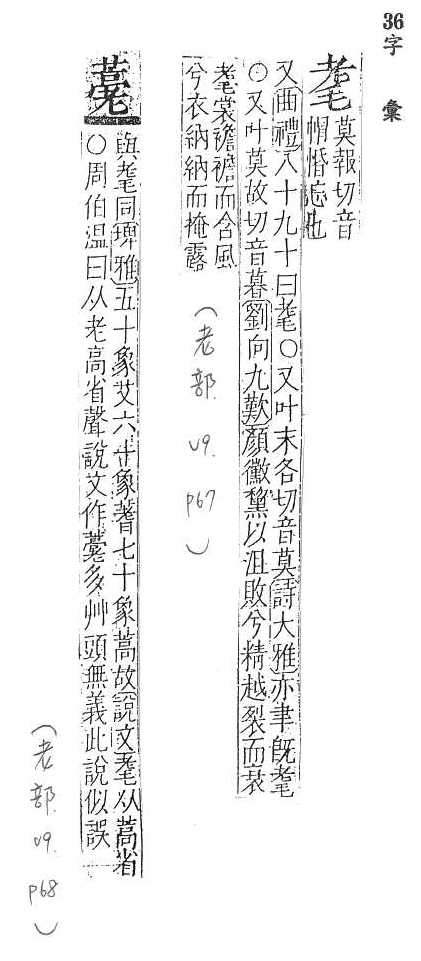 36字彙
耄
莫報切音
帽惛忘也
又曲禮八十九十曰耄〇又叶末各切音莫詩大雅亦聿旣耄
〇又叶莫故切音暮劉向九歎顏黴黧以沮敗兮精越裂而衰
耄裳襜襜而含風
兮衣納納而掩露
(老部 v9. p67)
薹
與耄同埤雅五十象艾六十象蓍七十象蒿故說文耄从蒿省
〇周伯溫曰从老高省聲說文作薹多艸頭無義此說似誤
(老部 v9. p68)